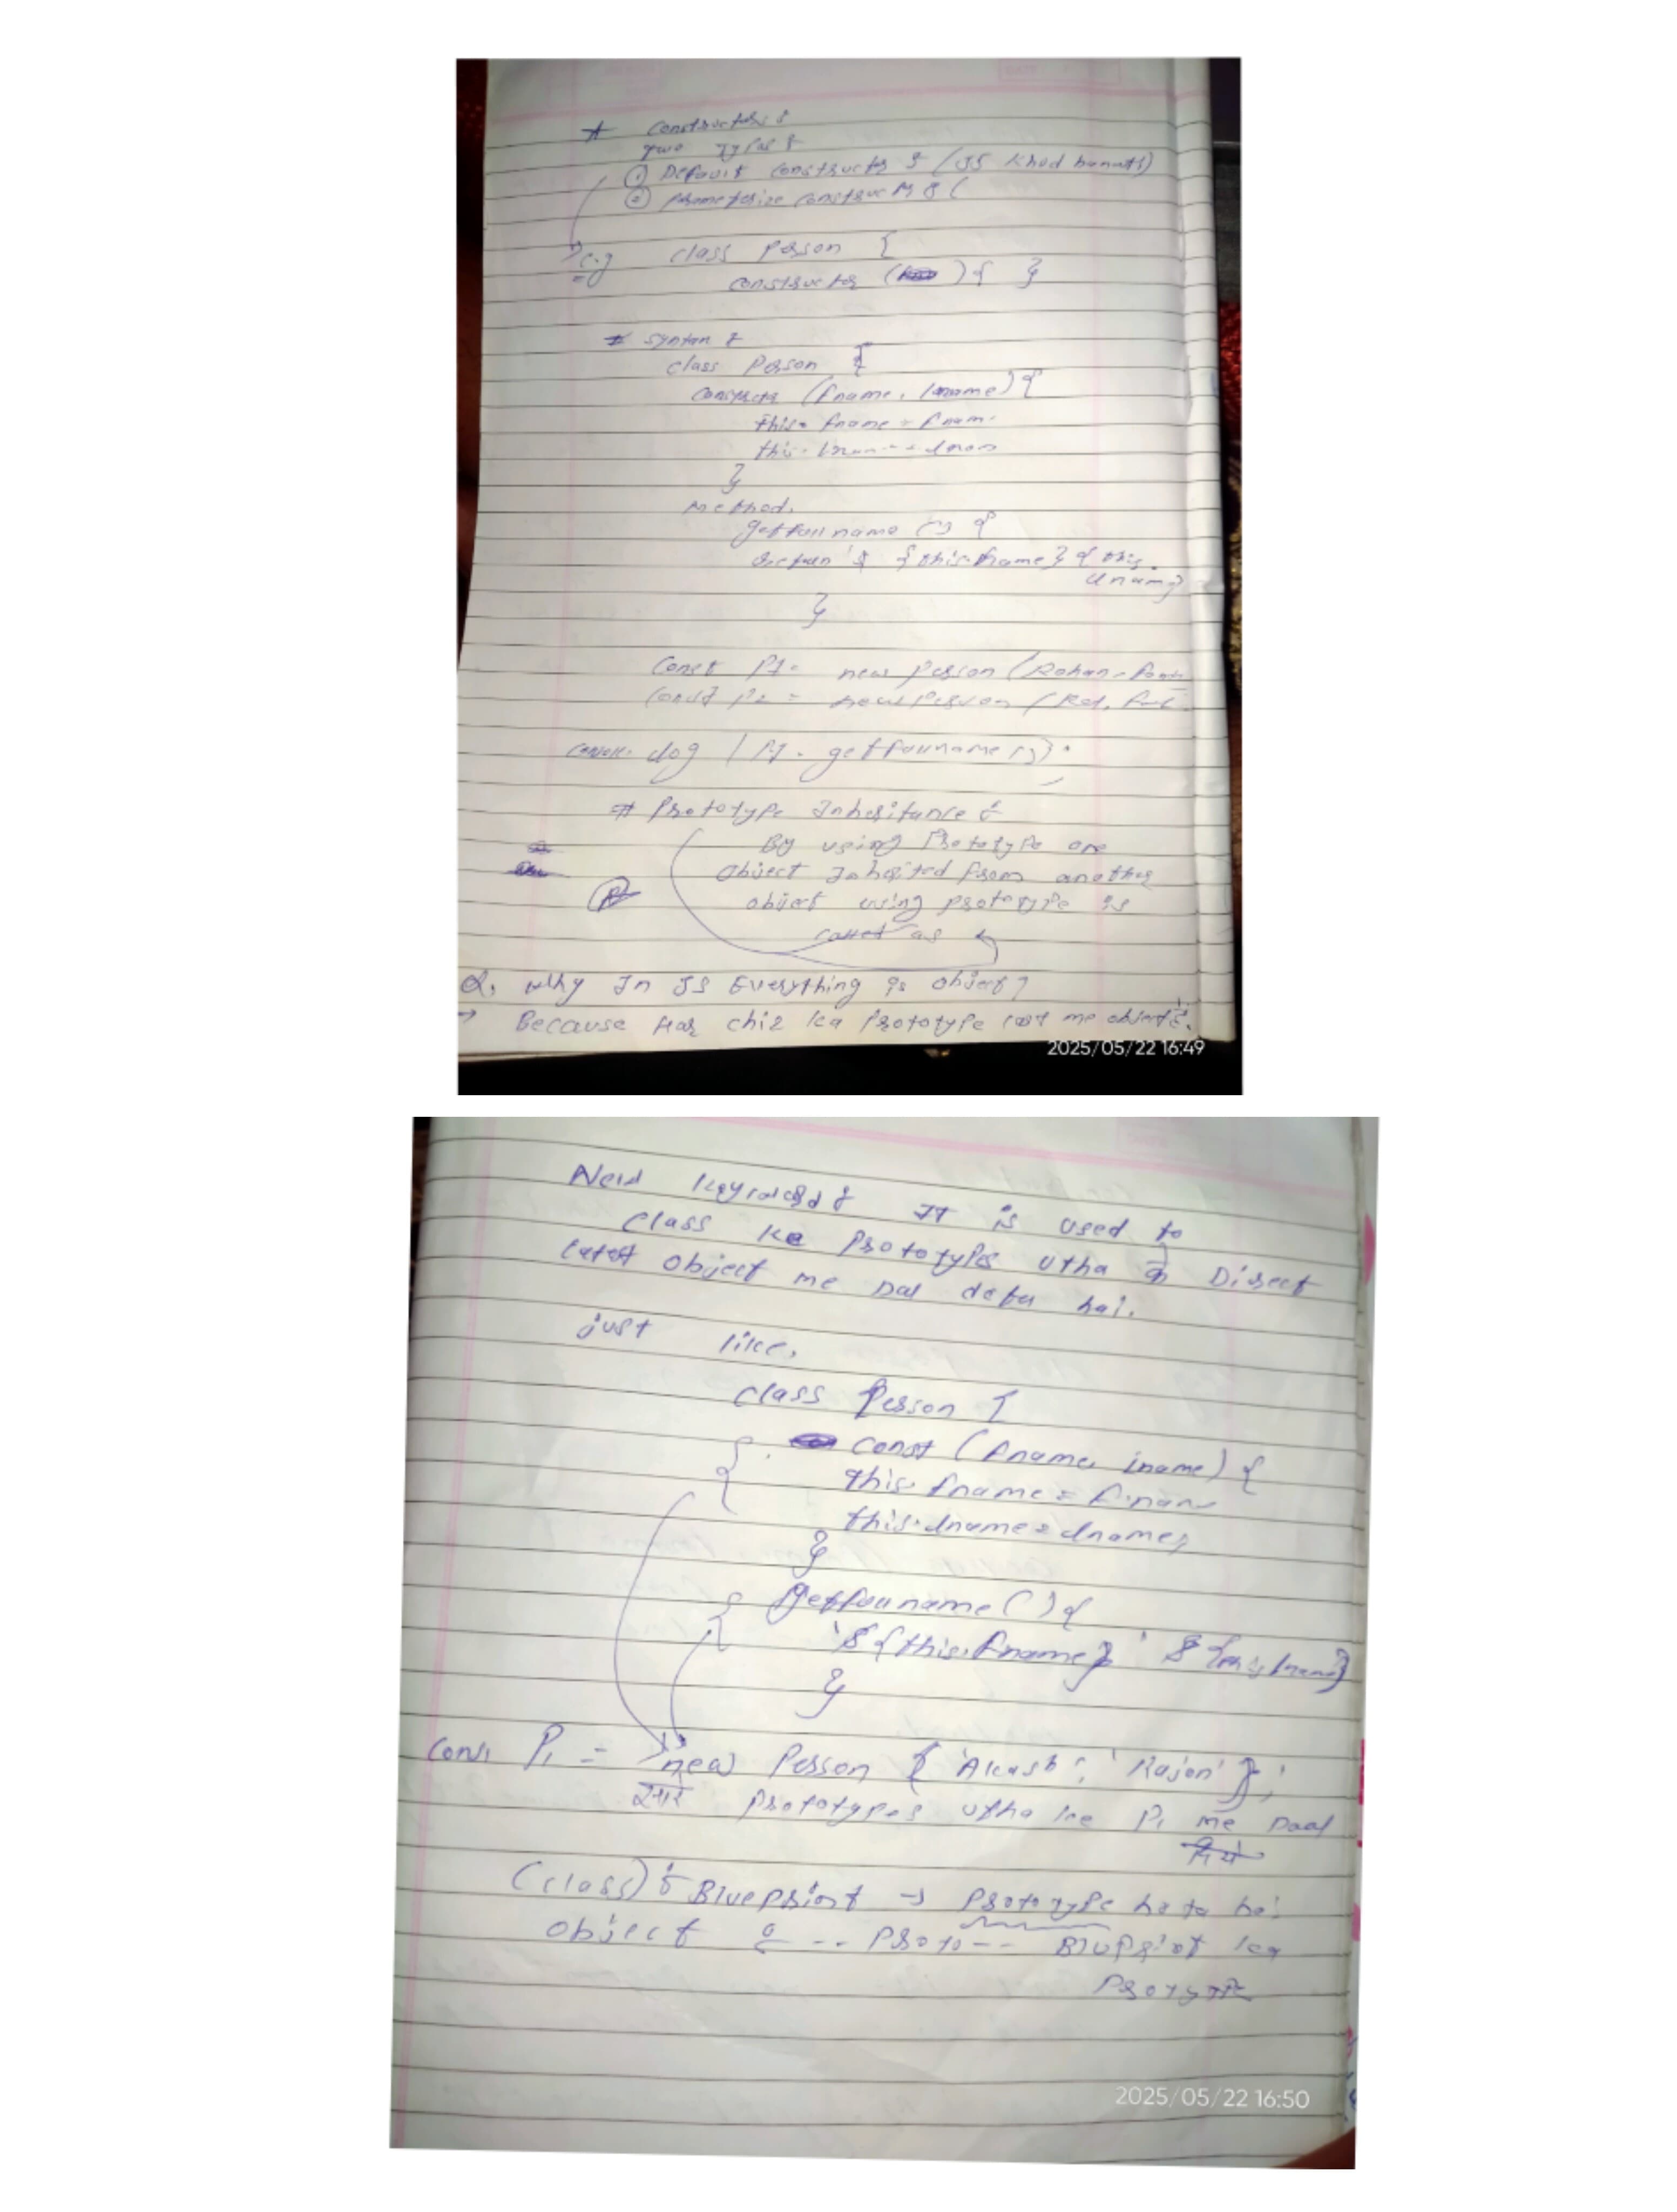 * Constructors :
two types :
① Default constructor : (JS khud banata)
② parameterize constructor : (
e.g class Person {
constructor ( ) { }
# Syntax :
class Person {
constructor (fname, lname) {
this. fname = fname
this. lname = lname
}
Method,
getfullname () {
return `$ {this.fname} {this.
lname}
}
Const P1 = new Person (Rohan,
Const P2 = new Person (
console. log ( P1. getfullname ());
# Prototype Inheritance :
By using Prototype one
object Inherited from another
object using prototype is
called as
Q. Why In JS Everything is object?
→ Because Har chiz ka Prototype last me object
2025/05/22 16:49
New keyword : It is used to
class ke Prototype utha के Direct
latest object me Dal deta hai.
just like,
class Person {
Const (fname, lname) {
this. fname = fname
this. lname = lname;
}
getfullname () {
`${this.fname} ` ${this.lname}
}
Const P1 = new Person { 'Akash', 'Rajan' };
prototypes utha ke P1 me Daal
(class) : Blueprint → Prototype hota hai
object : -- Proto -- Bluprint ka
Prototype
2025/05/22 16:50